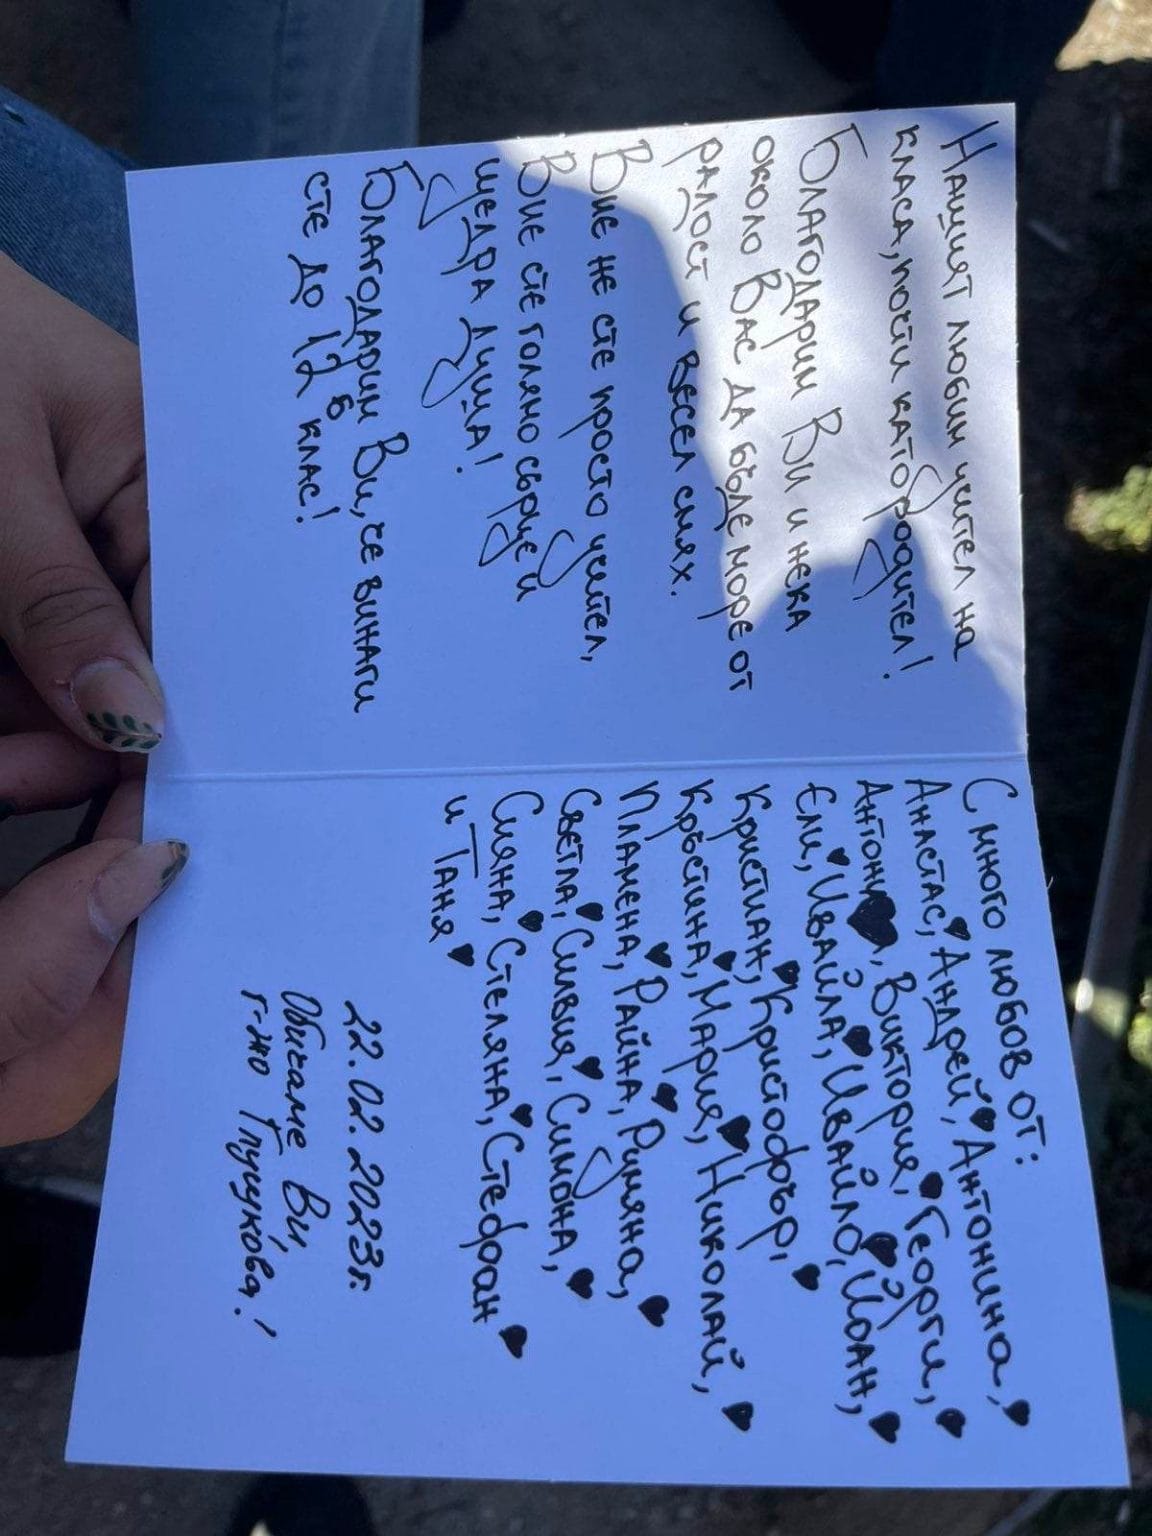 Нашият любим учител на
класа, почти като родител!
Благодарим Ви и нека
около Вас да бъде море от
радост и весел смях.
Вие не сте просто учител,
Вие сте голямо сърце и
щедра душа!
Благодарим Ви, че винаги
сте до 12 б клас!
С много любов от:
Анастас, Андрей, Антонина,
Антония, Виктория, Георги,
Ели, Ивайла, Ивайло, Йоан,
Кристиан, Кристофър,
Кръстина, Мария, Николай,
Пламена, Райна, Румяна,
Светла, Силвия, Симона,
Сияна, Стеляна, Стефан
и Таня
22.02.2023г.
Обичаме Ви,
г-жо Глушукова!